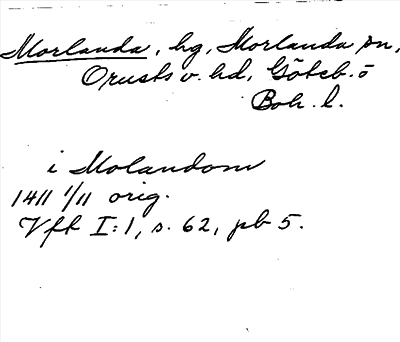 Morlanda, hg, Morlanda sn,
Orusts v. hd, Göteb. o
Boh. l.
i Molandom
1411 1/11 orig.
Vfk I:1, s. 62, pb 5.